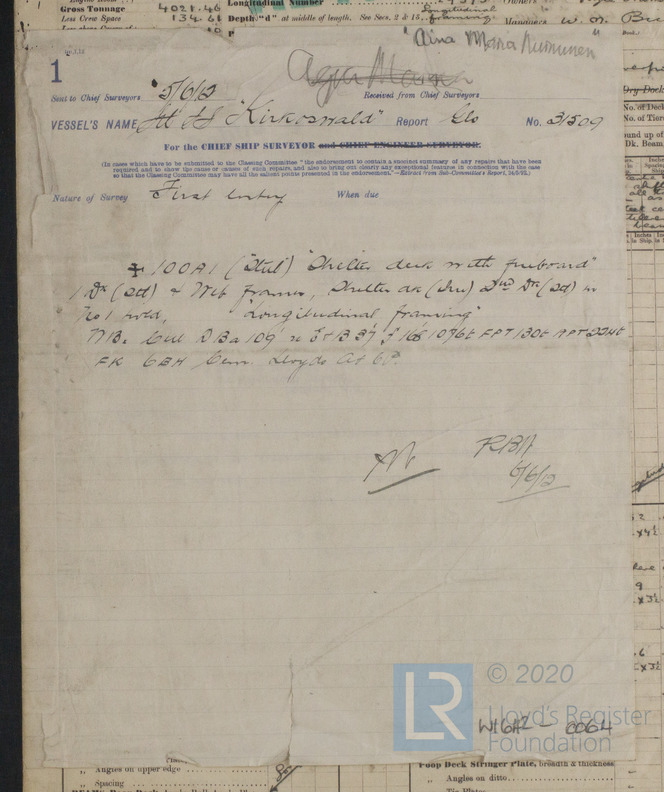 Gross Tonnage 4021.46
Less Crew Space 134.61
Longitudinal Number
Depth "d" at middle of length. See Secs. 2 & 13.
Longitudinal framing
Owners
Managers
"Aina Maria Nurminen"
1
Sent to Chief Surveyors 5/6/12 Received from Chief Surveyors
VESSEL'S NAME "Kirkoswald" Report Gls No. 31509
For the CHIEF SHIP SURVEYOR and CHIEF ENGINEER SURVEYOR.
(In cases which have to be submitted to the Classing Committee "the endorsement to contain a succinct summary of any repairs that have been
required and to show the cause or causes of such repairs, and also to bring out clearly any exceptional features in connection with the case
so that the Classing Committee may have all the salient points presented in the endorsement."—Extract from Sub-Committee's Report, 24/9/95.)
Nature of Survey First Entry When due
100A1 (Steel) "Shelter deck with freeboard"
1 Dk (Stl) & Web frames, Shelter dk (Stl) 2nd Dk (Stl) in
No 1 hold, "Longitudinal framing"
Cell DBa 109' FPT 130t APT 224t
FK 6BH Cem. Lloyds A & CP.
6/6/12
LR © 2020
Lloyd's Register
Foundation
W1612-0064
Angles on upper edge
" Spacing
Poop Deck Stringer Plate, breadth & thickness
" Angles on ditto